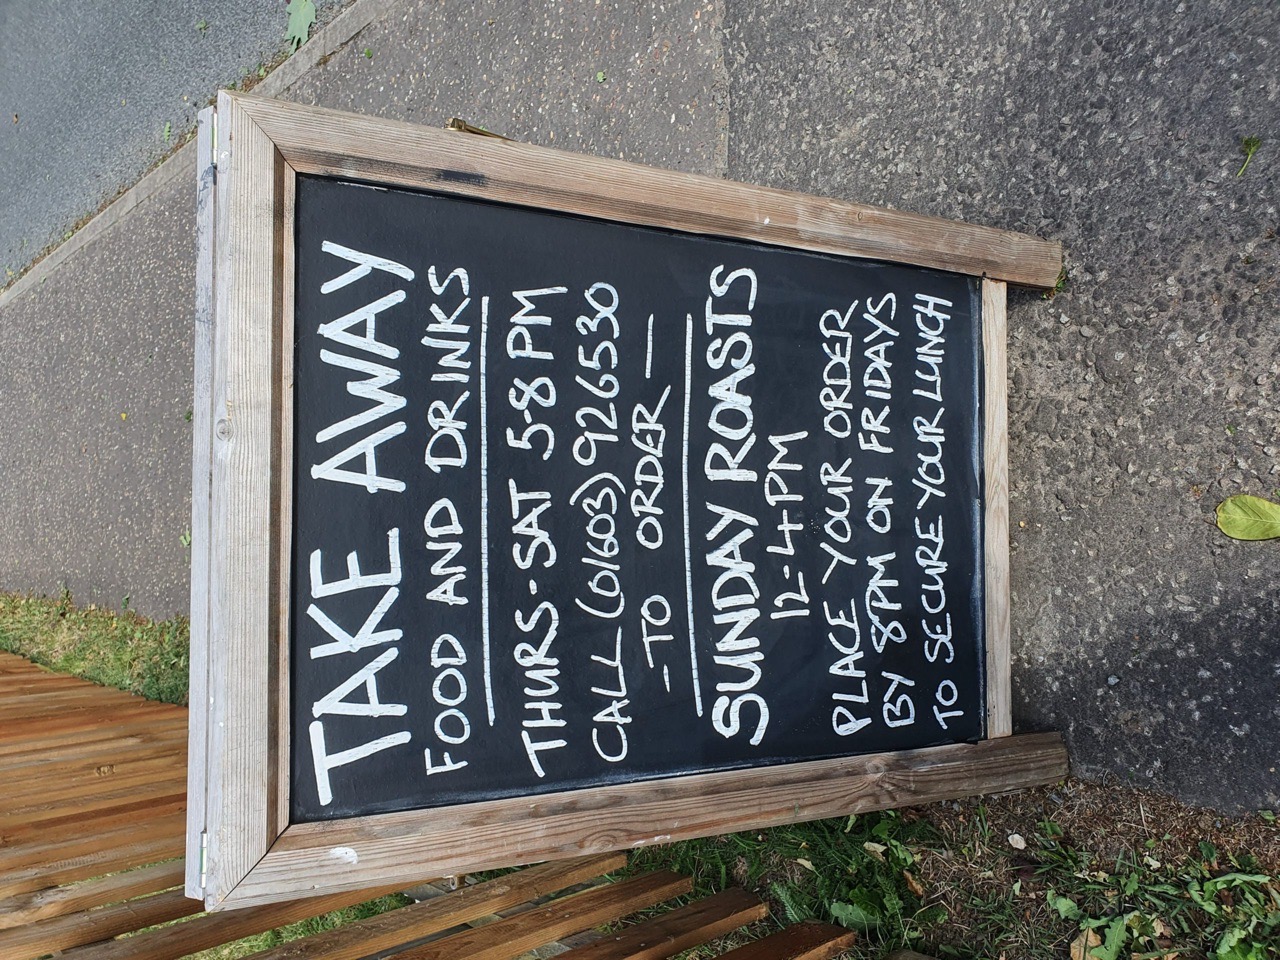 TAKE AWAY
FOOD AND DRINKS
THURS-SAT 5-8 PM
CALL (01603) 926530
- TO ORDER -
SUNDAY ROASTS
12-4PM
PLACE YOUR ORDER
BY 8PM ON FRIDAYS
TO SECURE YOUR LUNCH